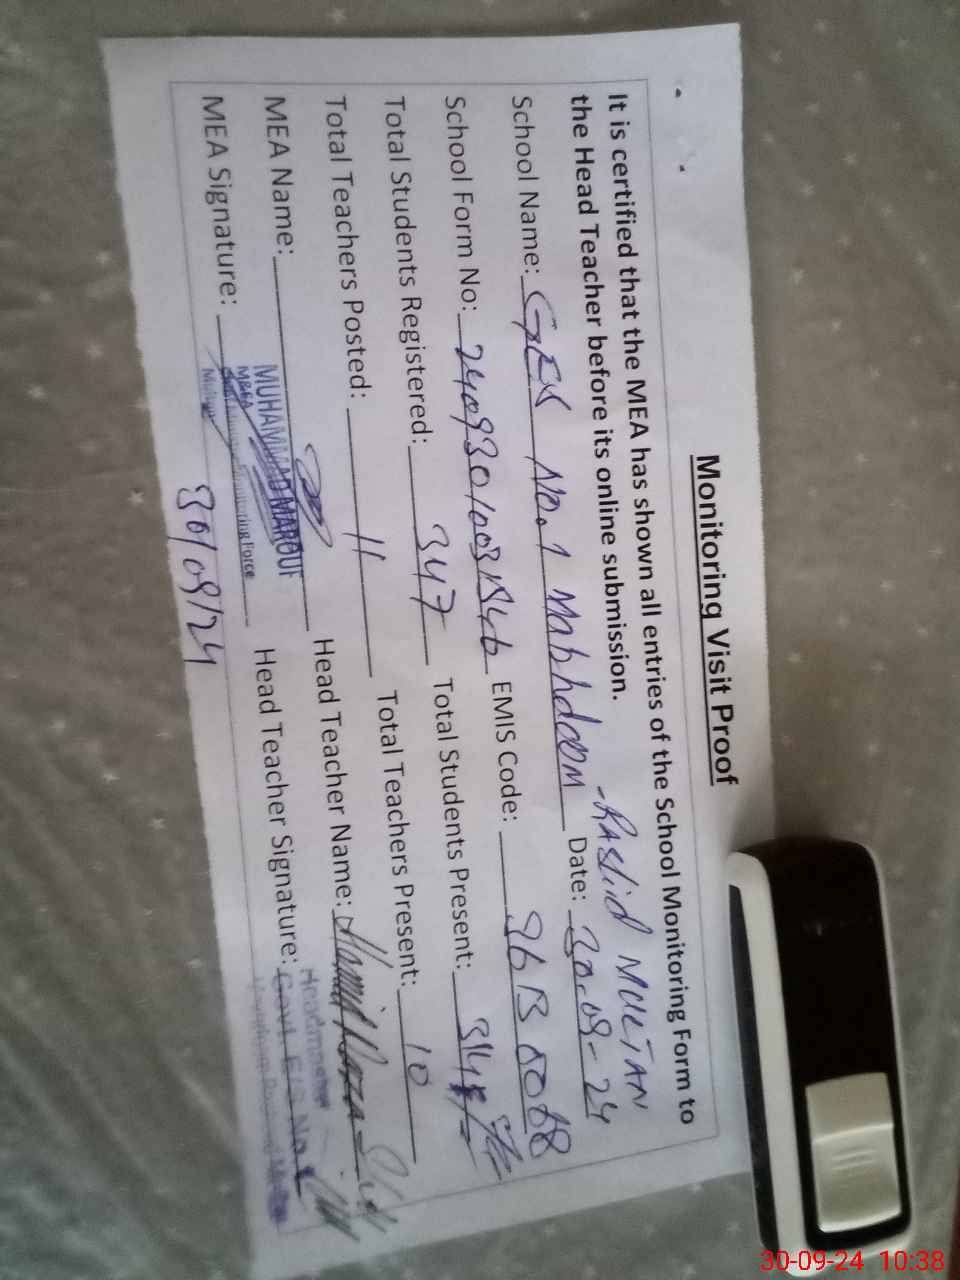 Monitoring Visit Proof
It is certified that the MEA has shown all entries of the School Monitoring Form to
the Head Teacher before its online submission.
-Rashid MULTAN
School Name: GES No.1 Makhdoom Date: 30.09-24
School Form No: EMIS Code:
Total Students Registered: 347 Total Students Present:
Total Teachers Posted: 11 Total Teachers Present: 10
MEA Name: MUHAMMAD MAROUF Head Teacher Name: Hamid Raza
MEA Signature: Monitoring Force Head Teacher Signature: Headmaster
Multan Govt. E/S No.1
30/09/24
30-09-24 10:38